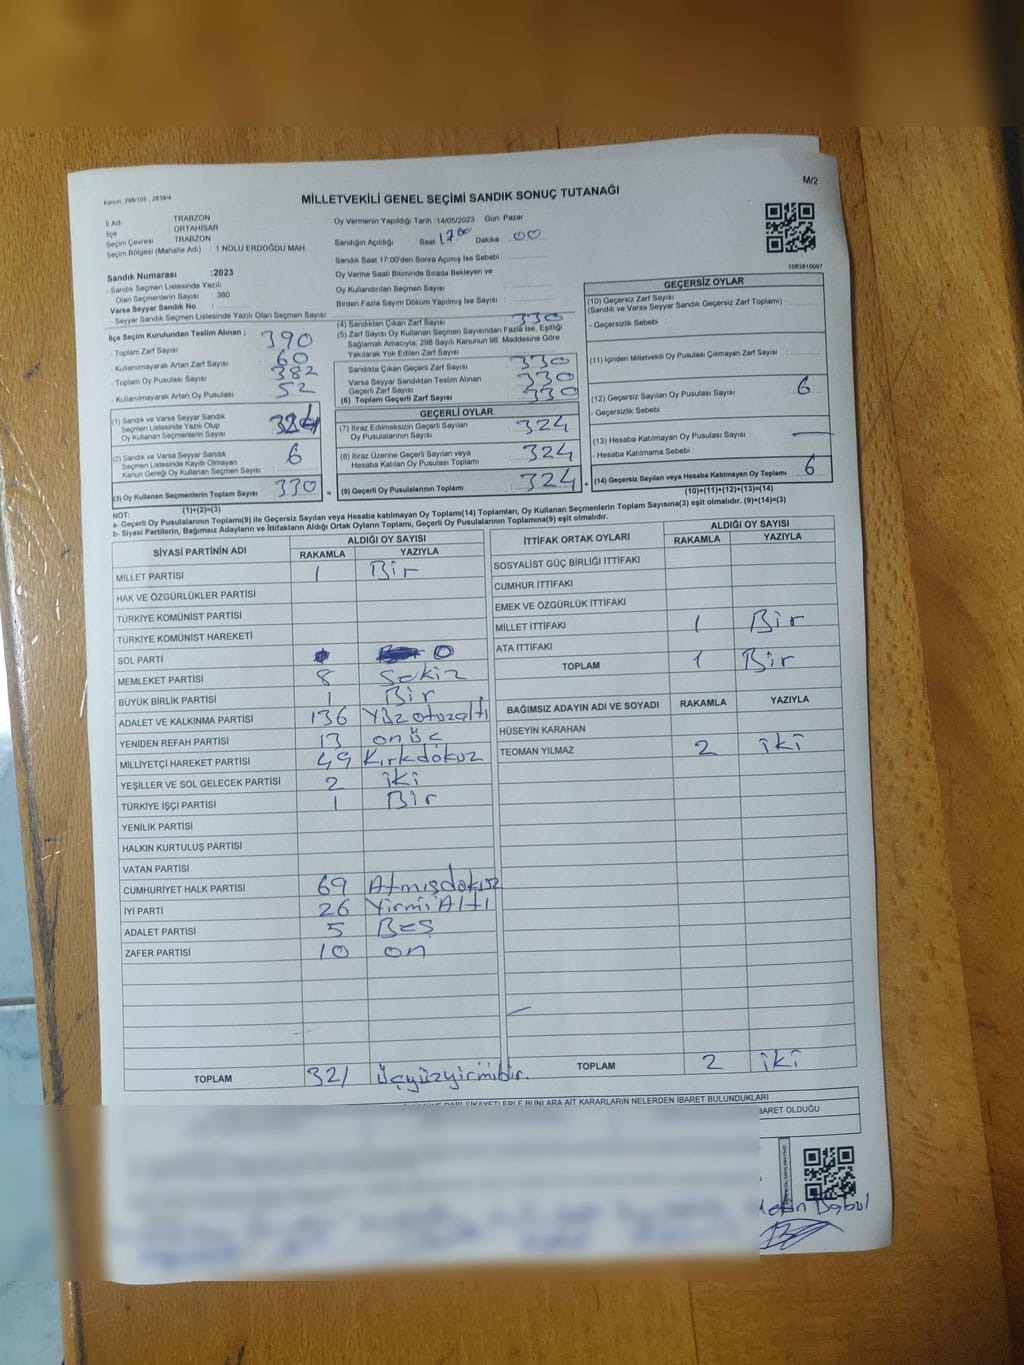 M/2
Kanun: 298/105 , 2839/4
MİLLETVEKİLİ GENEL SEÇİMİ SANDIK SONUÇ TUTANAĞI
İl Adı TRABZON
İlçe ORTAHİSAR
Seçim Çevresi TRABZON
Seçim Bölgesi (Mahalle Adı) : 1 NOLU ERDOĞDU MAH.
Oy Vermenin Yapıldığı Tarih :14/05/2023 Gün: Pazar
Sandığın Açıldığı Saat 17.00 Dakika : 00
Sandık Saat 17:00'den Sonra Açımış İse Sebebi :
Oy Verme Saati Bitiminde Sırada Bekleyen ve
Oy Kullandırılan Seçmen Sayısı :
Birden Fazla Sayım Döküm Yapılmış İse Sayısı :
1083810097
Sandık Numarası :2023
- Sandık Seçmen Listesinde Yazılı
Olan Seçmenlerin Sayısı : 380
Varsa Seyyar Sandık No :
- Seyyar Sandık Seçmen Listesinde Yazılı Olan Seçmen Sayısı
İlçe Seçim Kurulundan Teslim Alınan ;
- Toplam Zarf Sayısı 390
- Kullanılmayarak Artan Zarf Sayısı 60
- Toplam Oy Pusulası Sayısı 382
- Kullanılmayarak Artan Oy Pusulası 52
(1) Sandık ve Varsa Seyyar Sandık
Seçmen Listesinde Yazılı Olup
Oy Kullanan Seçmenlerin Sayısı 324
(2) Sandık ve Varsa Seyyar Sandık
Seçmen Listesinde Kayıtlı Olmayan
Kanun Gereği Oy Kullanan Seçmen Sayısı 6
(3) Oy Kullanan Seçmenlerin Toplam Sayısı 330
(1)+(2)=(3)
(4) Sandıktan Çıkan Zarf Sayısı 330
(5) Zarf Sayısı Oy Kullanan Seçmen Sayısından Fazla İse, Eşitliği
Sağlamak Amacıyla, 298 Sayılı Kanunun 98. Maddesine Göre
Yakılarak Yok Edilen Zarf Sayısı
Sandıkta Çıkan Geçerli Zarf Sayısı 330
Varsa Seyyar Sandıktan Teslim Alınan
Geçerli Zarf Sayısı 330
(6) Toplam Geçerli Zarf Sayısı 330
GEÇERLİ OYLAR
(7) İtiraz Edilmeksizin Geçerli Sayılan
Oy Pusulalarının Sayısı 324
(8) İtiraz Üzerine Geçerli Sayılan veya
Hesaba Katılan Oy Pusulası Toplamı 324
(9) Geçerli Oy Pusulalarının Toplamı 324
GEÇERSİZ OYLAR
(10) Geçersiz Zarf Sayısı
(Sandık ve Varsa Seyyar Sandık Geçersiz Zarf Toplamı)
- Geçersizlik Sebebi :
(11) İçinden Milletvekili Oy Pusulası Çıkmayan Zarf Sayısı :
(12) Geçersiz Sayılan Oy Pusulası Sayısı 6
- Geçersizlik Sebebi :
(13) Hesaba Katılmayan Oy Pusulası Sayısı —
- Hesaba Katılmama Sebebi :
(14) Geçersiz Sayılan veya Hesaba Katılmayan Oy Toplamı 6
(10)+(11)+(12)+(13)=(14)
NOT:
a- Geçerli Oy Pusulalarının Toplamı(9) ile Geçersiz Sayılan veya Hesaba Katılmayan Oy Toplamı(14) Toplamları, Oy Kullanan Seçmenlerin Toplam Sayısına(3) eşit olmalıdır. (9)+(14)=(3)
b- Siyasi Partilerin, Bağımsız Adayların ve İttifakların Aldığı Ortak Oyların Toplamı, Geçerli Oy Pusulalarının Toplamına(9) eşit olmalıdır.
SİYASİ PARTİNİN ADI ALDIĞI OY SAYISI
RAKAMLA YAZIYLA
MİLLET PARTİSİ 1 Bir
HAK VE ÖZGÜRLÜKLER PARTİSİ
TÜRKİYE KOMÜNİST PARTİSİ
TÜRKİYE KOMÜNİST HAREKETİ
SOL PARTİ 0
MEMLEKET PARTİSİ 8 Sekiz
BÜYÜK BİRLİK PARTİSİ 1 Bir
ADALET VE KALKINMA PARTİSİ 136 Yüz otuzaltı
YENİDEN REFAH PARTİSİ 13 onüç
MİLLİYETÇİ HAREKET PARTİSİ 49 Kırkdokuz
YEŞİLLER VE SOL GELECEK PARTİSİ 2 iki
TÜRKİYE İŞÇİ PARTİSİ 1 Bir
YENİLİK PARTİSİ
HALKIN KURTULUŞ PARTİSİ
VATAN PARTİSİ
CUMHURİYET HALK PARTİSİ 69 Atmışdokuz
İYİ PARTİ 26 Yirmi Altı
ADALET PARTİSİ 5 Beş
ZAFER PARTİSİ 10 on
TOPLAM 321 üçyüzyirmibir.
İTTİFAK ORTAK OYLARI ALDIĞI OY SAYISI
RAKAMLA YAZIYLA
SOSYALİST GÜÇ BİRLİĞİ İTTİFAKI
CUMHUR İTTİFAKI
EMEK VE ÖZGÜRLÜK İTTİFAKI
MİLLET İTTİFAKI 1 Bir
ATA İTTİFAKI
TOPLAM 1 Bir
BAĞIMSIZ ADAYIN ADI VE SOYADI RAKAMLA YAZIYLA
HÜSEYİN KARAHAN
TEOMAN YILMAZ 2 iki
TOPLAM 2 iki
DAİR ŞİKAYETLERLE BUNLARA AİT KARARLARIN NELERDEN İBARET BULUNDUKLARI
BARET OLDUĞU